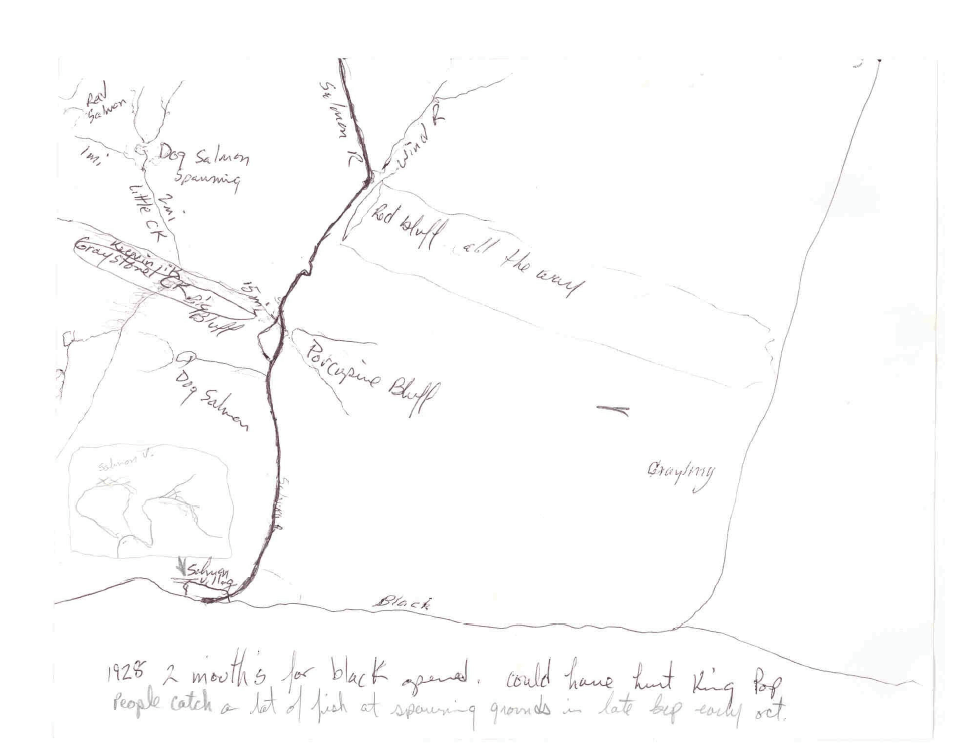 Red
Salmon
Salmon R
Wind R
1mi
Dog Salmon
Spawning
Little CK
2mi
Red bluff all the way
Graystone
15mi
Big
Bluff
Porcupine Bluff
Dog Salmon
Grayling
Salmon V.
Salmon
Black
1928 2 mouth's for black opened. could have hurt King Pop
People catch a lot of fish at spawning grounds in late Sep early oct.